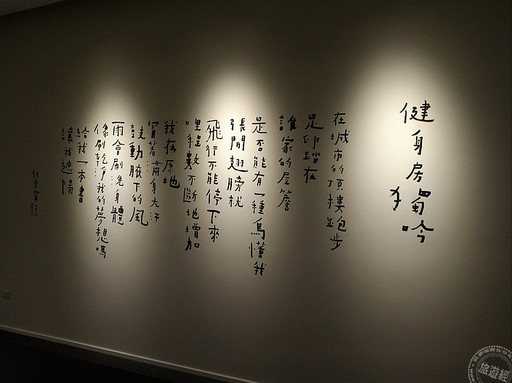 健身房獨吟
在城市的頂樓跑步
足印踏在
誰家的屋簷
是否能有一種鳥懂我
張開翅膀就
飛行不能停下來
哩程數不斷地增加
我在原地
冒著滿身大汗
鼓動腋下的風
雨會刷洗身體
像刷乾淨我的夢想嗎
給我一本書
讓我
旅遊經